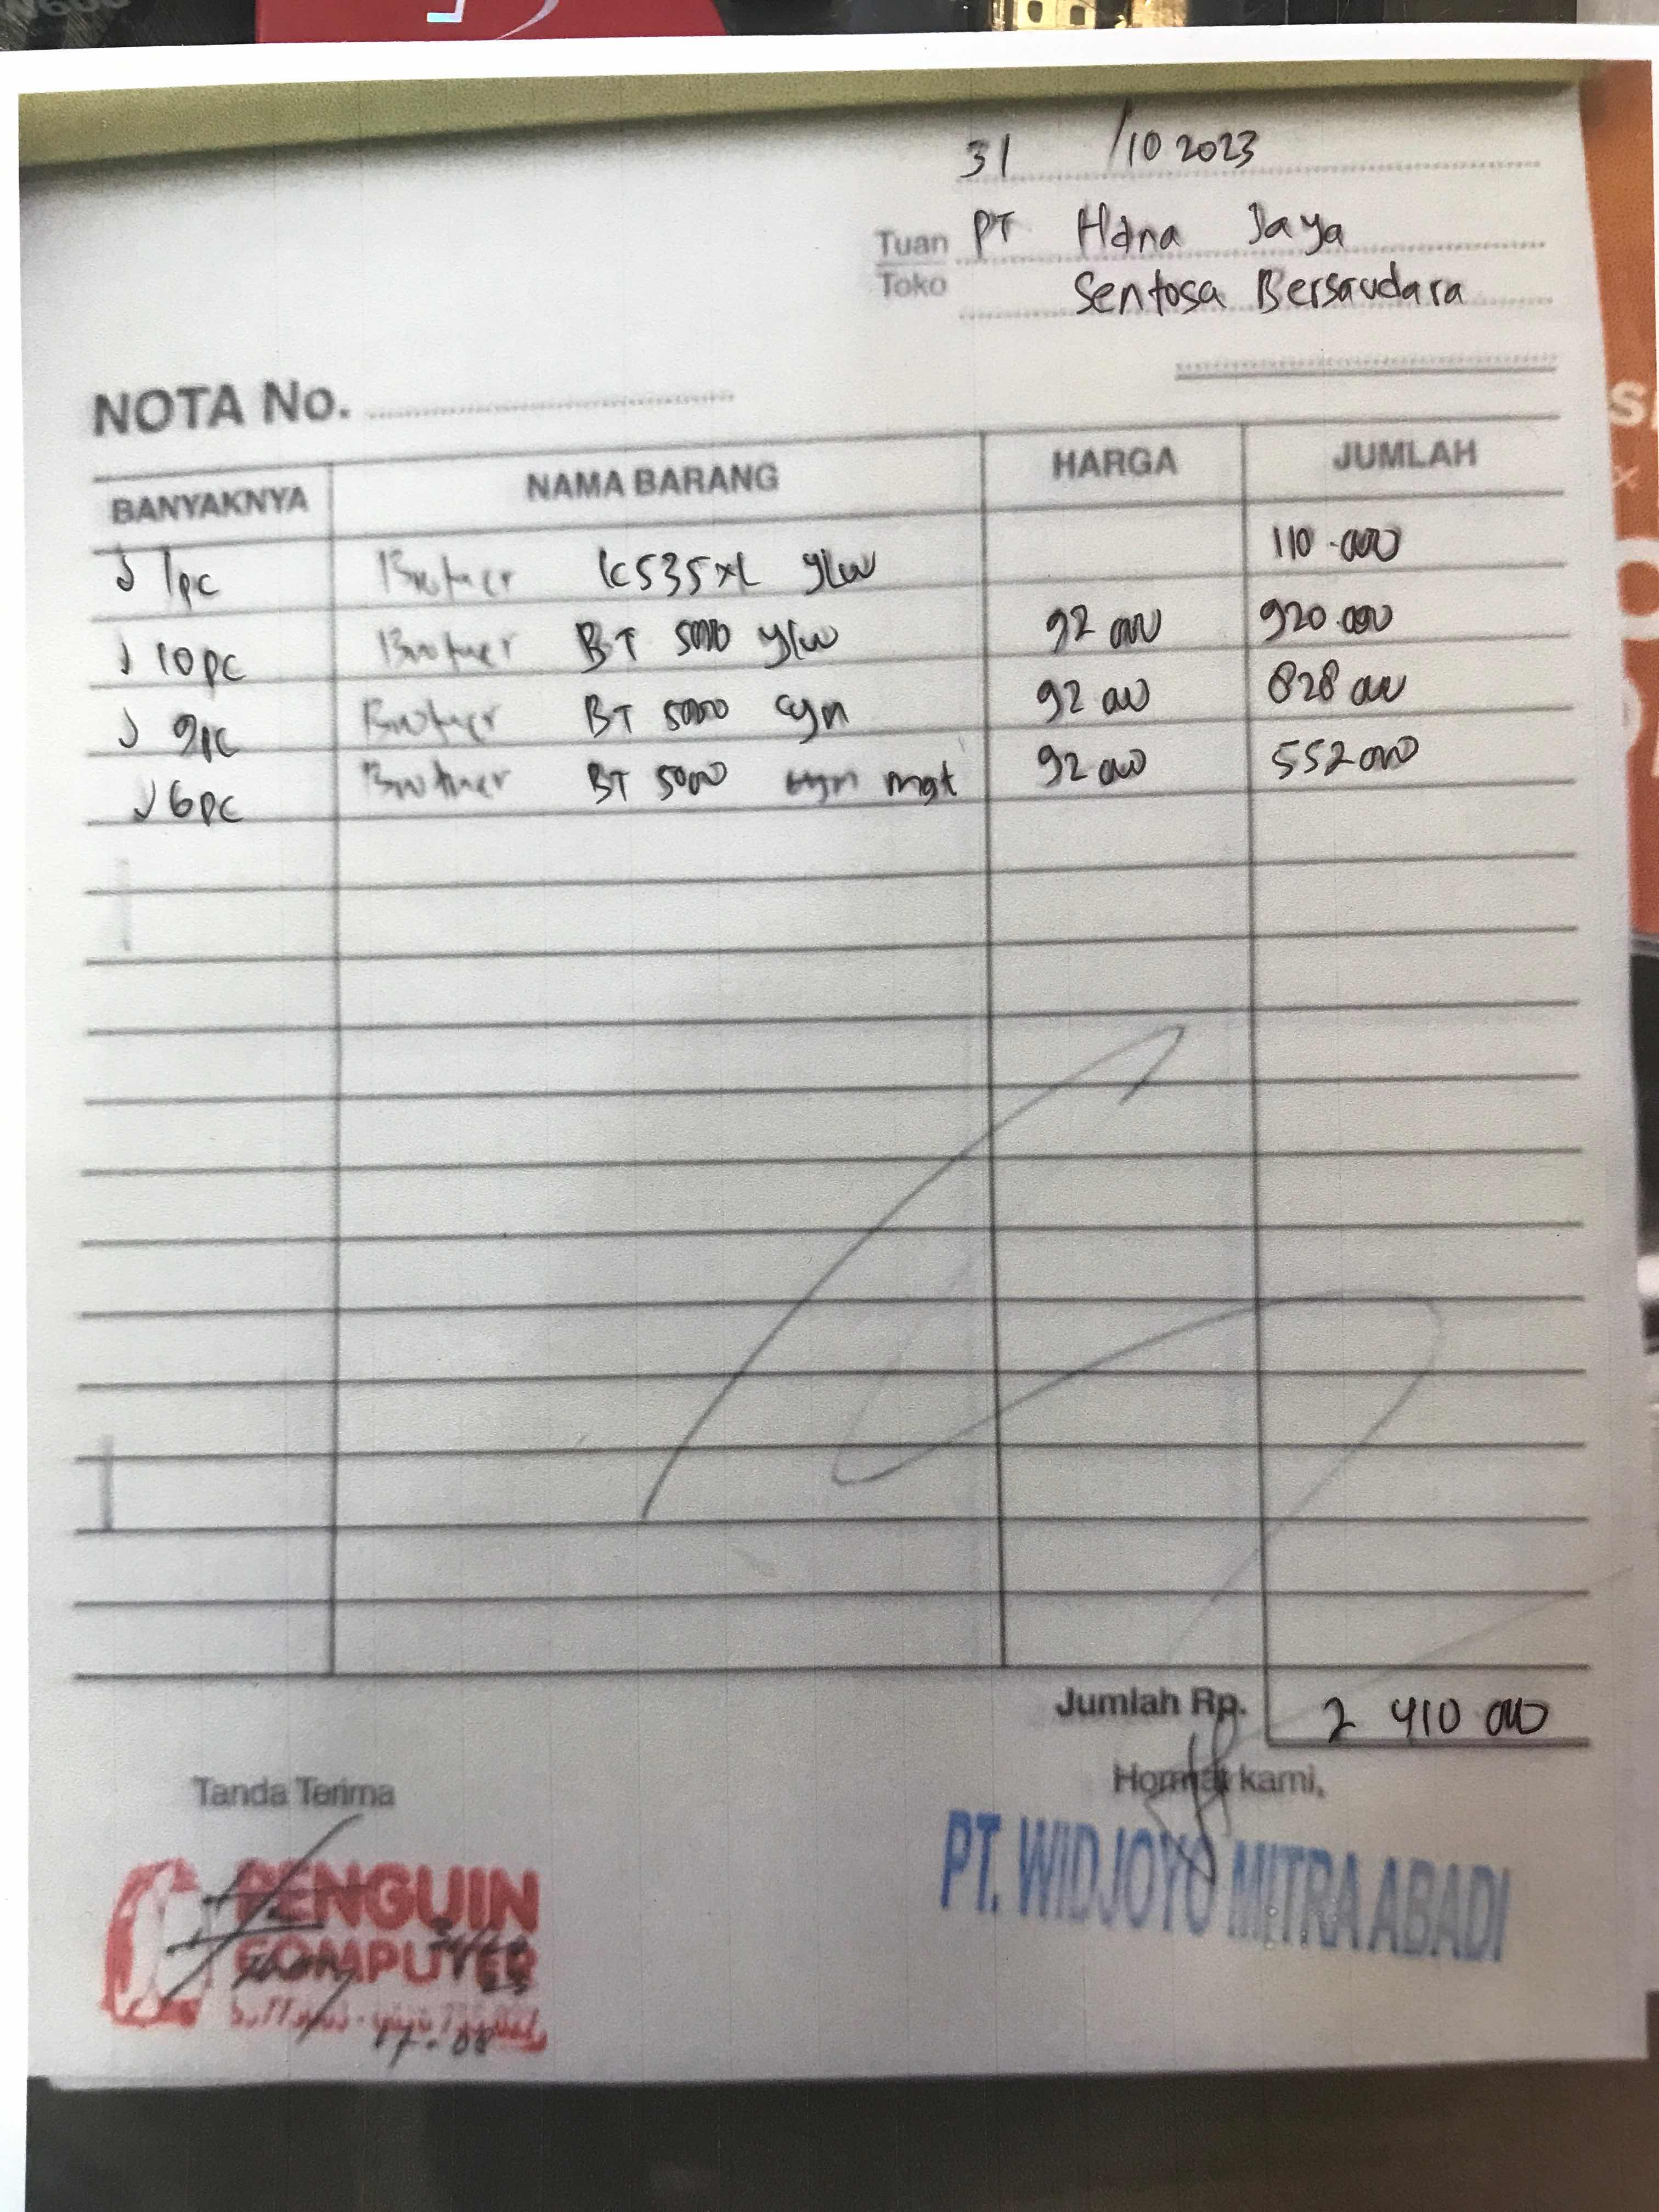 31 /10 2023
Tuan PT Hana Jaya
Toko Sentosa Bersaudara
NOTA No.
BANYAKNYA NAMA BARANG HARGA JUMLAH
1pc Brother lc535xl ylw 110.000
10pc Brother BT 5000 ylw 92 000 920.000
9pc Brother BT 5000 cyn 92 000 828 000
6pc Brother BT 5000 cyn mgt 92 000 552 000
Jumlah Rp. 2 410 000
Tanda Terima Hormat kami,
PENGUIN PT. WIDJOYO MITRA ABADI
COMPUTER
17.08